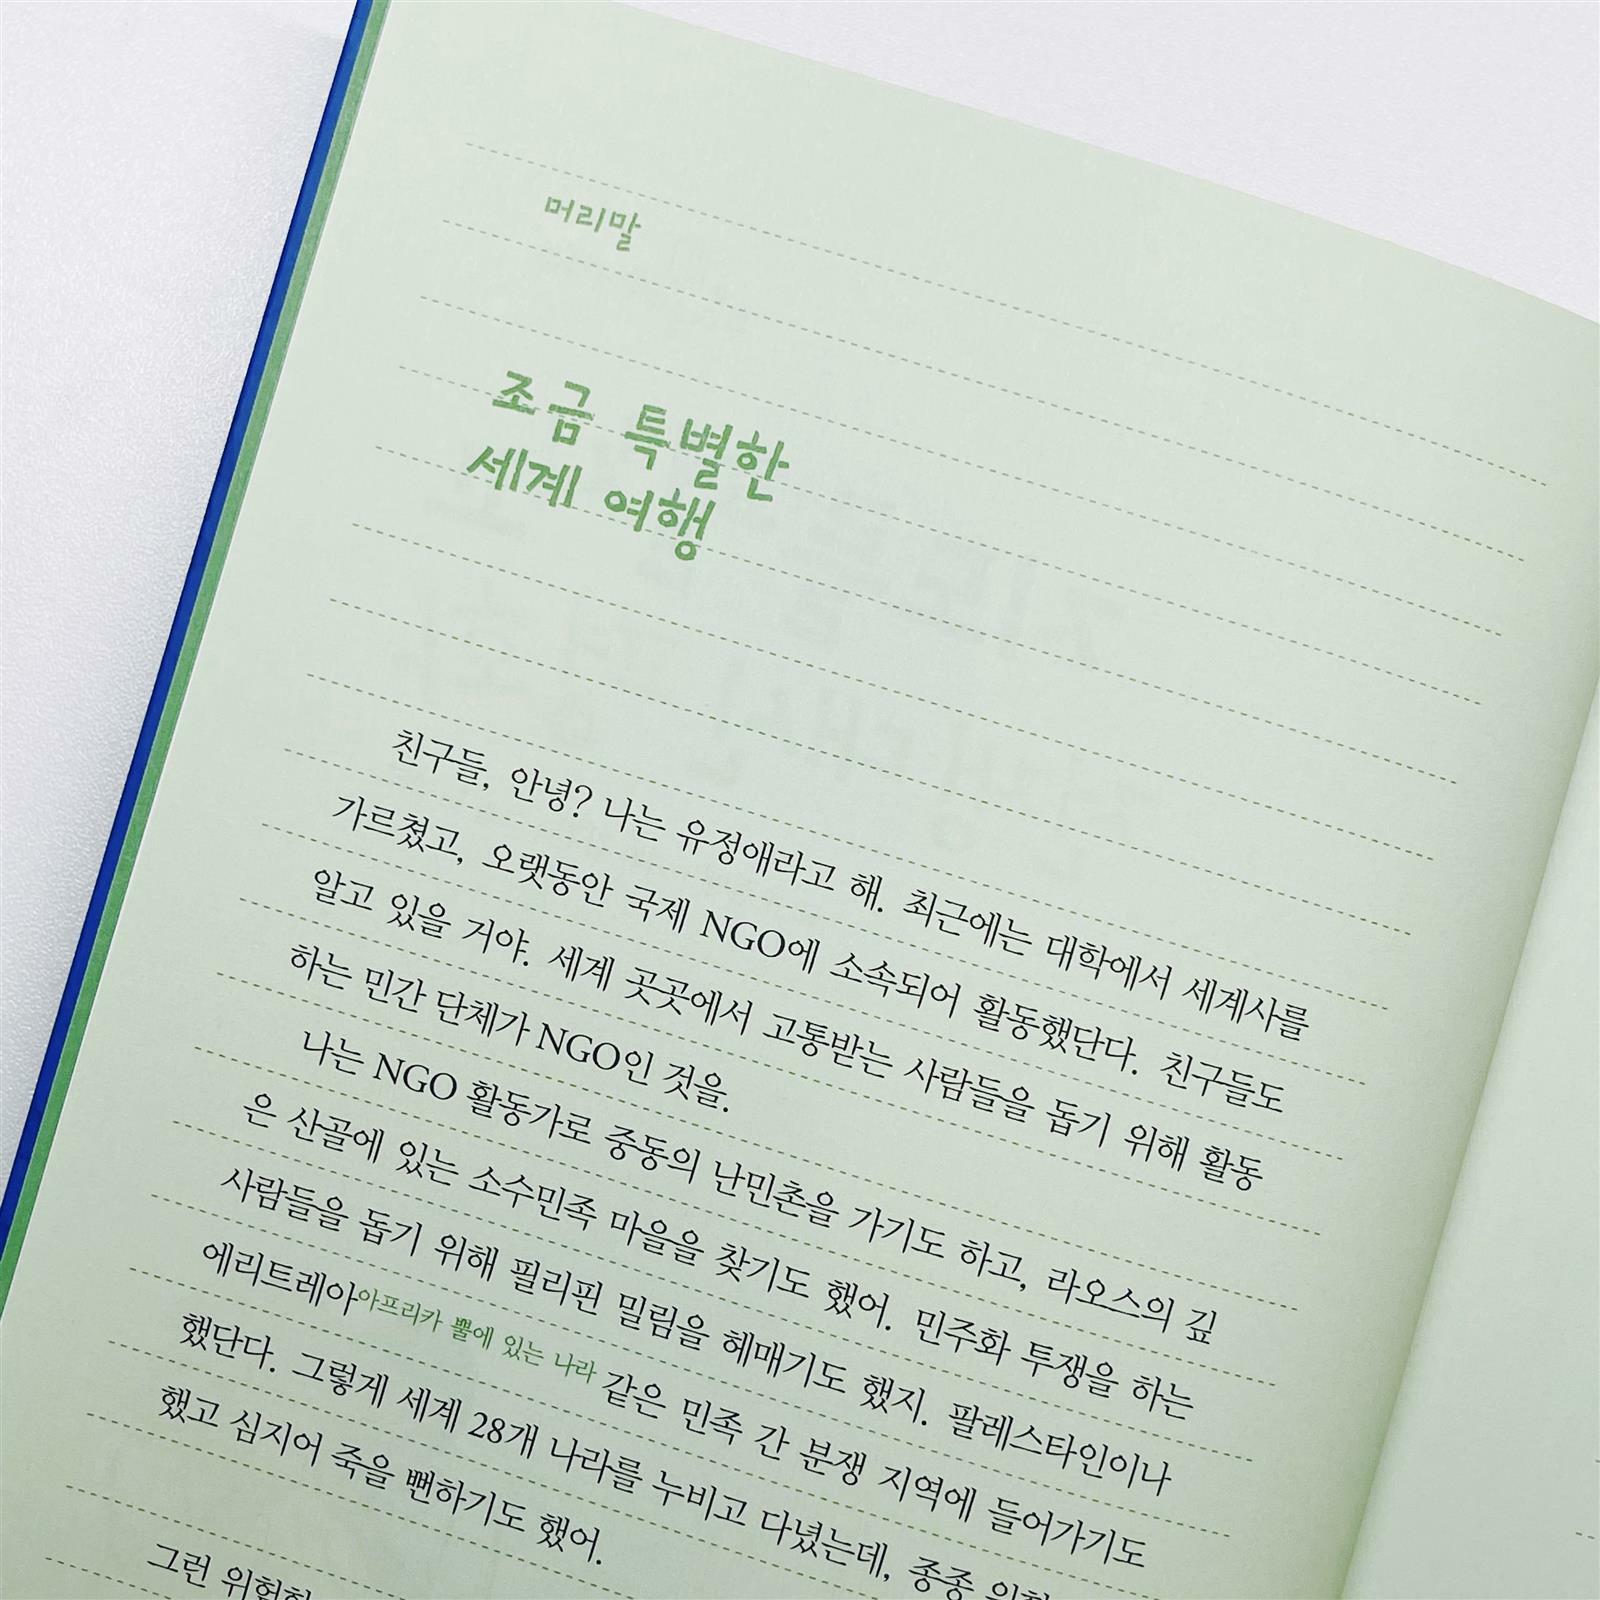 머리말
조금 특별한
세계 여행
친구들, 안녕? 나는 유정애라고 해. 최근에는 대학에서 세계사를
가르쳤고, 오랫동안 국제 NGO에 소속되어 활동했단다. 친구들도
알고 있을 거야. 세계 곳곳에서 고통받는 사람들을 돕기 위해 활동
하는 민간 단체가 NGO인 것을.
나는 NGO 활동가로 중동의 난민촌을 가기도 하고, 라오스의 깊
은 산골에 있는 소수민족 마을을 찾기도 했어. 민주화 투쟁을 하는
사람들을 돕기 위해 필리핀 밀림을 헤매기도 했지. 팔레스타인이나
에리트레아아프리카 뿔에 있는 나라 같은 민족 간 분쟁 지역에 들어가기도
했단다. 그렇게 세계 28개 나라를 누비고 다녔는데, 종종
했고 심지어 죽을 뻔하기도 했어.
그런